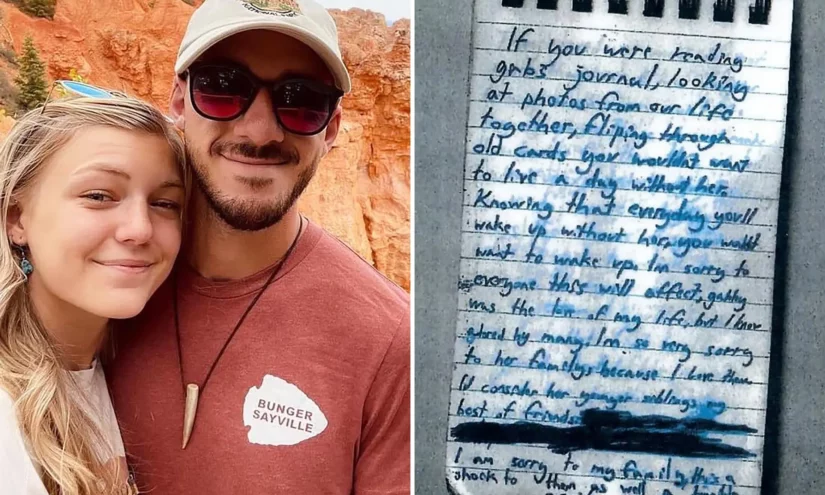 BUNGER
SAYVILLE
If you were reading
gabs journal, looking
at photos from our life
together, fliping through
old cards you wouldnt want
to live a day without her.
Knowing that everyday you'll
wake up without her, you wouldnt
want to wake up. I'm sorry to
everyone this will affect, gabby
was the love of my life, but I know
adored by many. I'm so very sorry
to her familys because I love them
I'd consider her younger siblings my
best of friends
I am sorry to my family, this is a
shock to them as well a